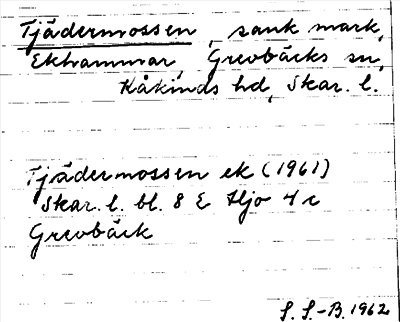 Tjädermossen, sank mark,
Ekhammar, Grevbäcks sn,
Kåkinds hd, Skar. l.
Tjädermossen ek (1961)
Skar. l. bl. 8 E Hjo 4 c
Grevbäck
S. S.-B. 1962